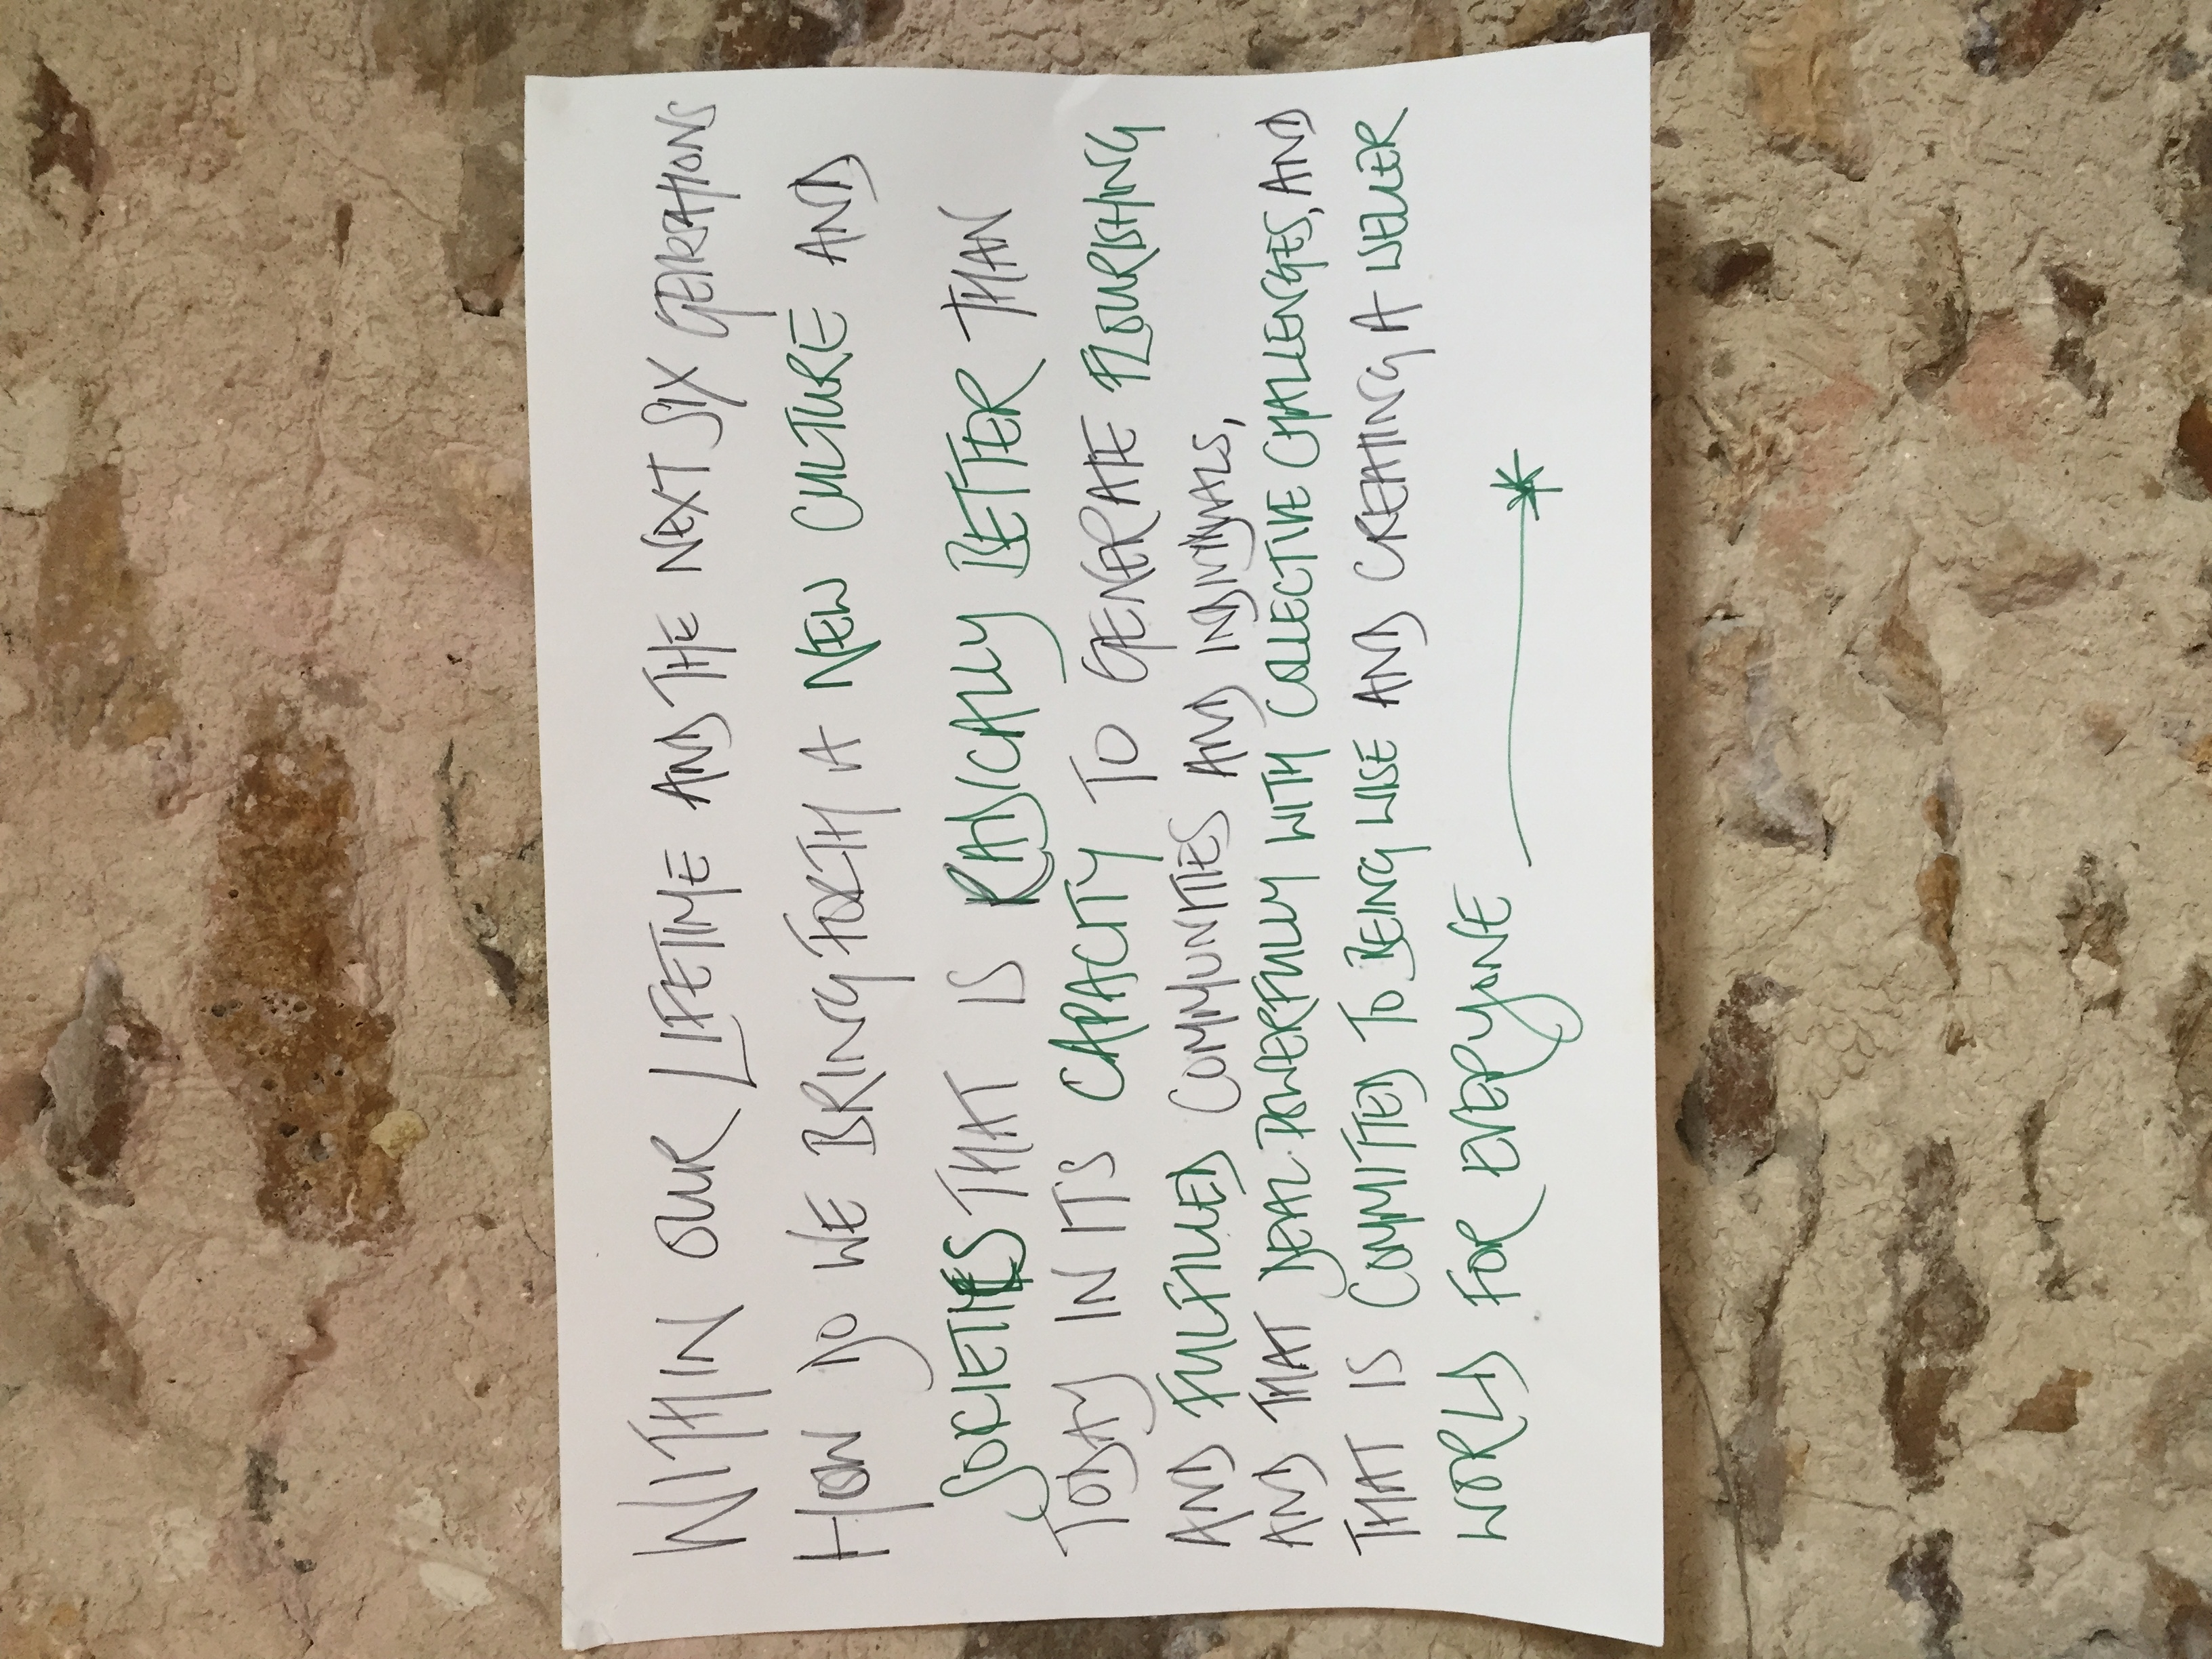 WITHIN OUR LIFETIME AND THE NEXT SIX GENERATIONS
HOW DO WE BRING FORTH A NEW CULTURE AND
SOCIETIES THAT IS RADICALLY BETTER THAN
TODAY IN IT'S CAPACITY TO GENERATE FLOURISHING
AND FULFILLED COMMUNITIES AND INDIVIDUALS,
AND THAT DEAL POWERFULLY WITH COLLECTIVE CHALLENGES, AND
THAT IS COMMITTED TO BEING WISE AND CREATING A WELLER
WORLD FOR EVERYONE